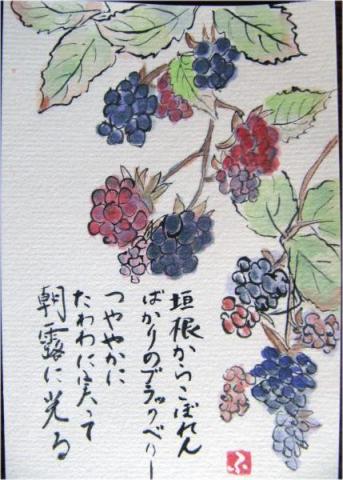 垣根からこぼれん
ばかりのブラックベリー
つややかに
たわわに実って
朝露に光る
ふ